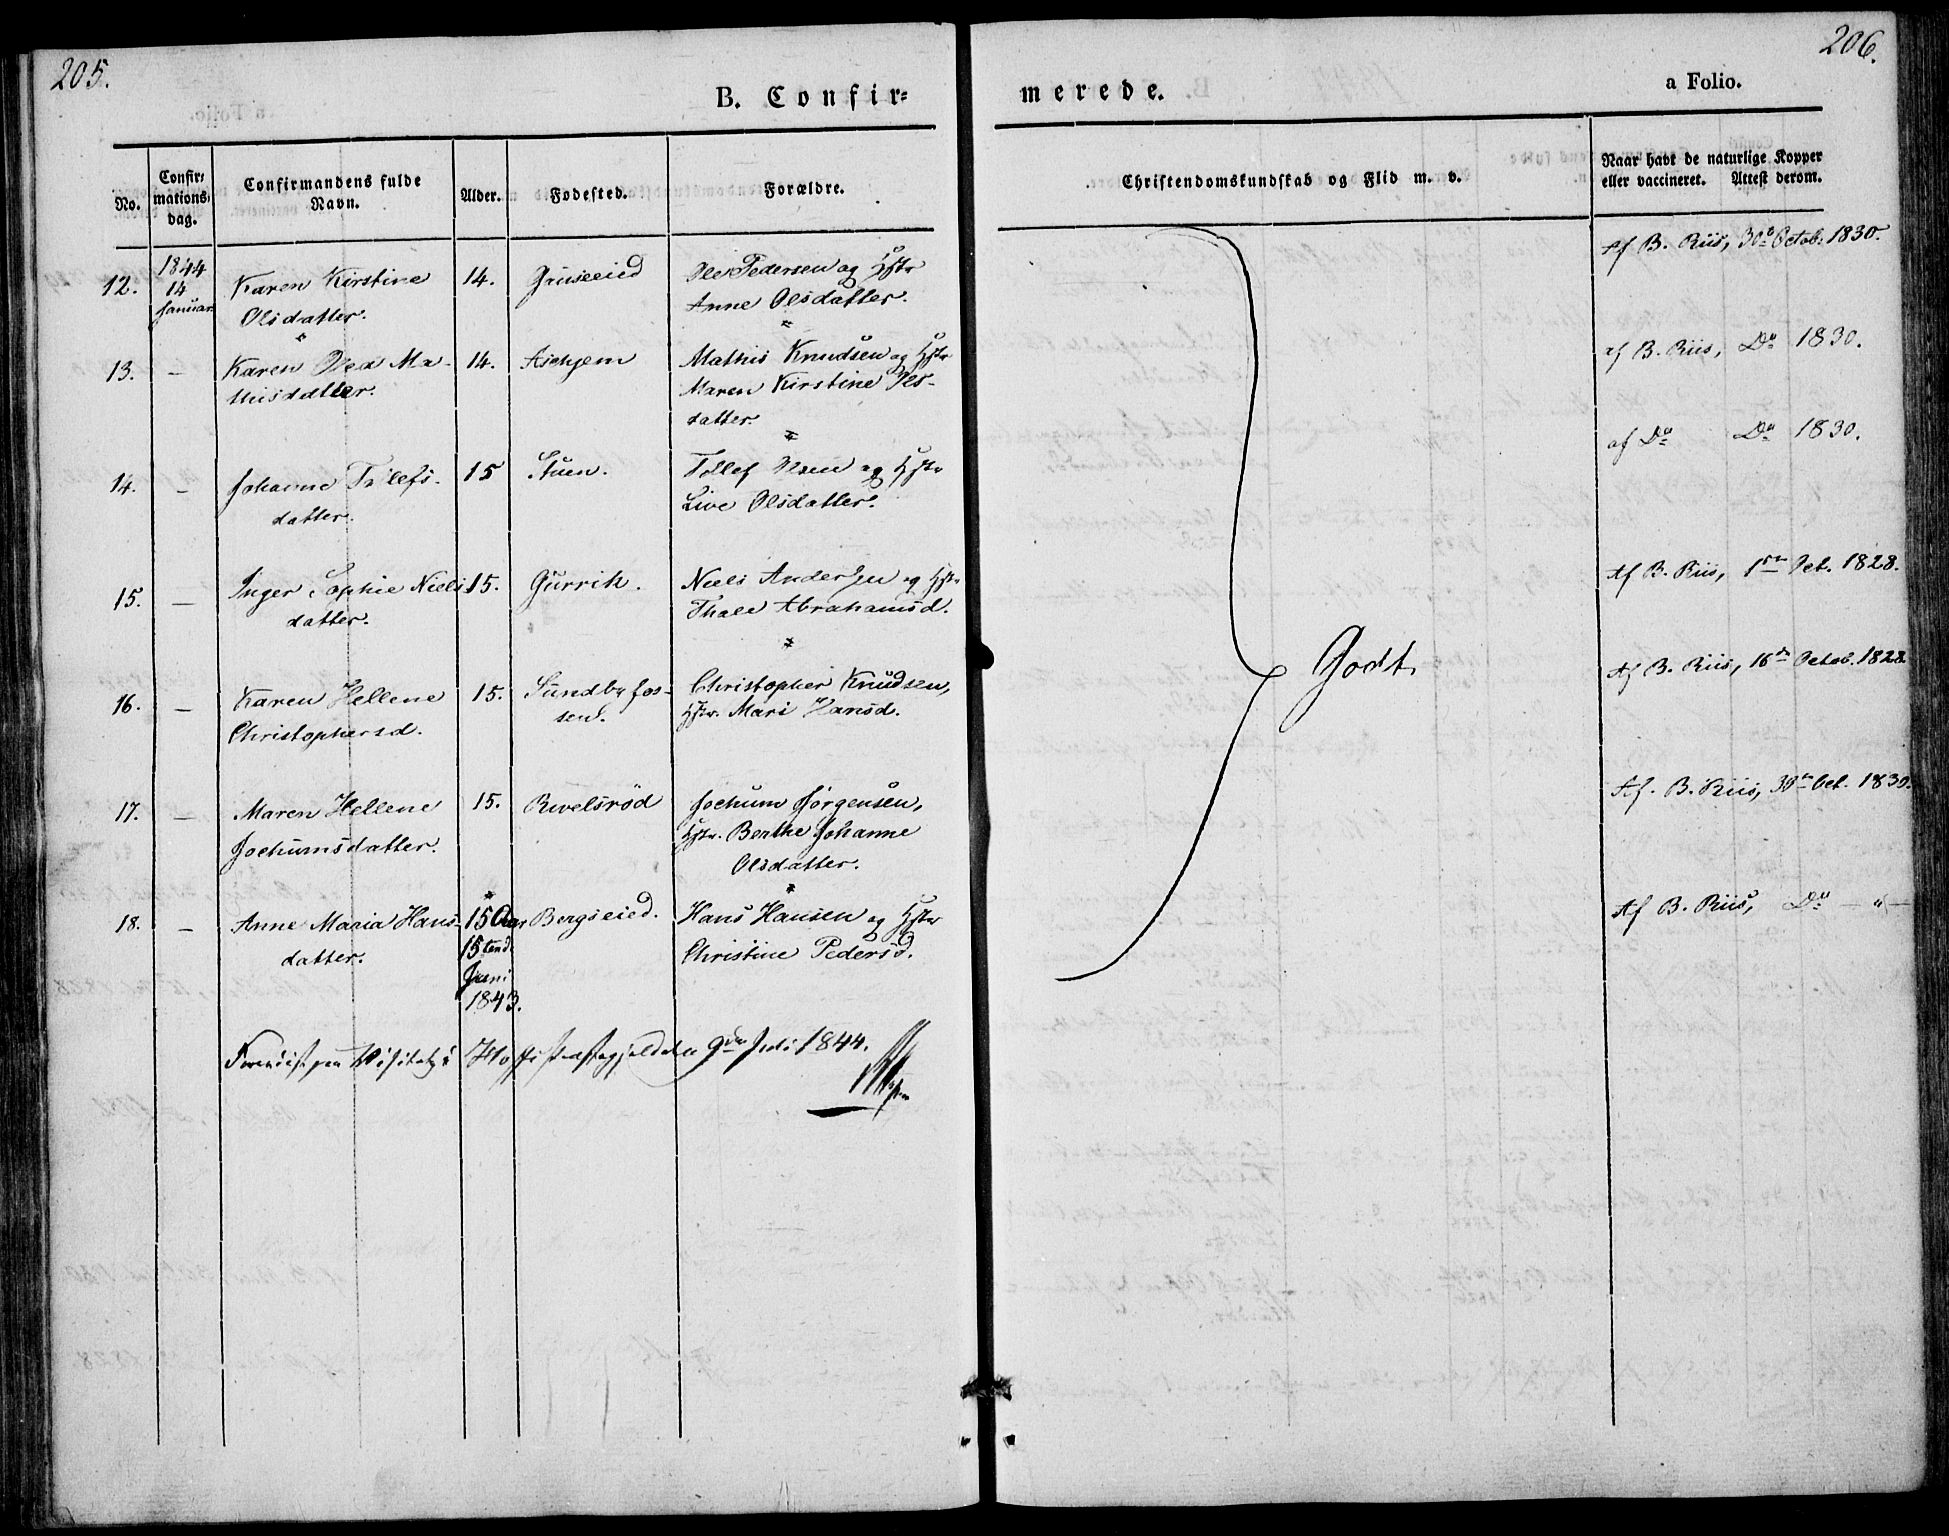 205.
206.
B. Confir=
merede.
a Folio.
No.
Confir=
mations=
dag.
Confirmandens fulde
Navn.
Alder.
Fodested.
Forældre.
Christendomskundskab og Flid m. v.
Naar havt de naturlige Kopper
eller vaccineret. Attest derom.
12.
1844
14
Januar.
Karen Kirstine
Olsdatter.
14.
Gruseeied
Ole Pedersen og Hstr
Anne Olsdatter.
Af B. Riis, 30te Octob. 1830.
13. —
Karen Dea Ma-
thisdatter.
14.
Aschjem
Mathis Knudsen og Hstr
Maren Kirstine Ols-
datter.
af B. Riis, Do 1830.
14. —
Johanne Tollefs-
datter.
15
Stuen.
Tollef Olsen og Hstr
Live Olsdatter.
af Do Do 1830.
15. —
Inger Sophie Niels
datter.
15.
Gurrik.
Niels Andersen og Hstr
Thale Abrahamsd.
Af B. Riis, 1ste Oct. 1828.
16. —
Karen Hellene
Christophersd.
15.
Sundbyfos-
sen.
Christopher Knudsen,
Hstr. Mari Hansd.
Af B. Riis, 16de Octob. 1828.
17. —
Maren Hellene
Jochumsdatter.
15.
Revelsröd
Jochum Jörgensen,
Hstr. Berthe Johanne
Olsdatter.
Af. B. Riis, 30te Oct. 1830.
18. —
Anne Maria Hans-
datter.
15 Aar
15tend
Juni
1843.
Bergseied.
Hans Hansen og Hstr
Christine Pedersd.
Af B. Riis, Do — " —
Godt,
Foreviist paa Visitats i Hof Præstegjeld den 9de Juli 1844.